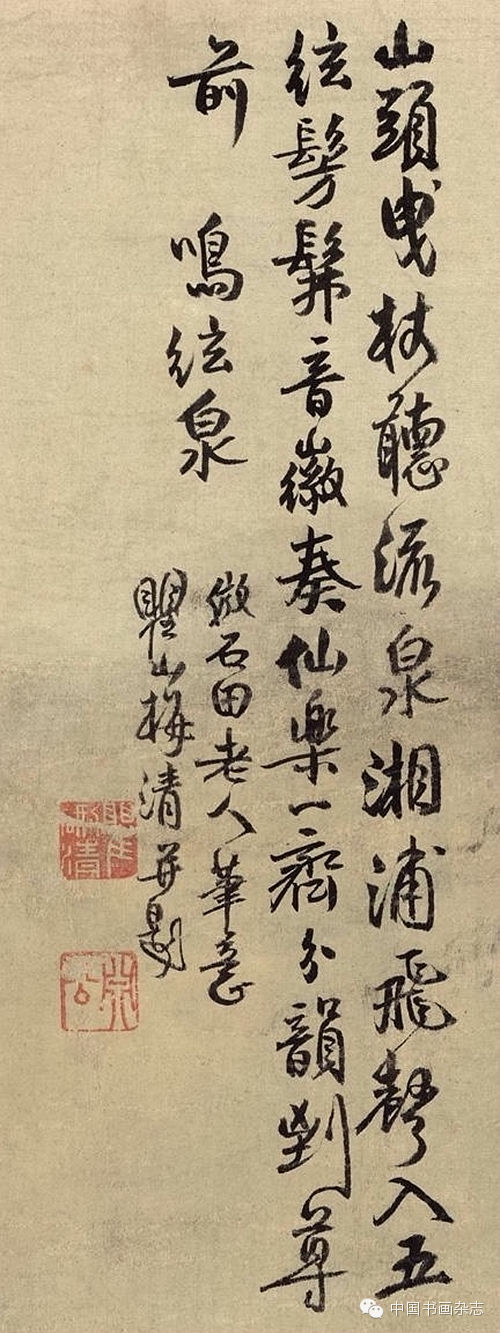 山頭曳杖聽流泉湘浦飛聲入五
絃髣髴音徽奏仙樂一齊分韻到尊
前　鳴絃泉
倣石田老人筆意
瞿山梅清并題
中国书画杂志